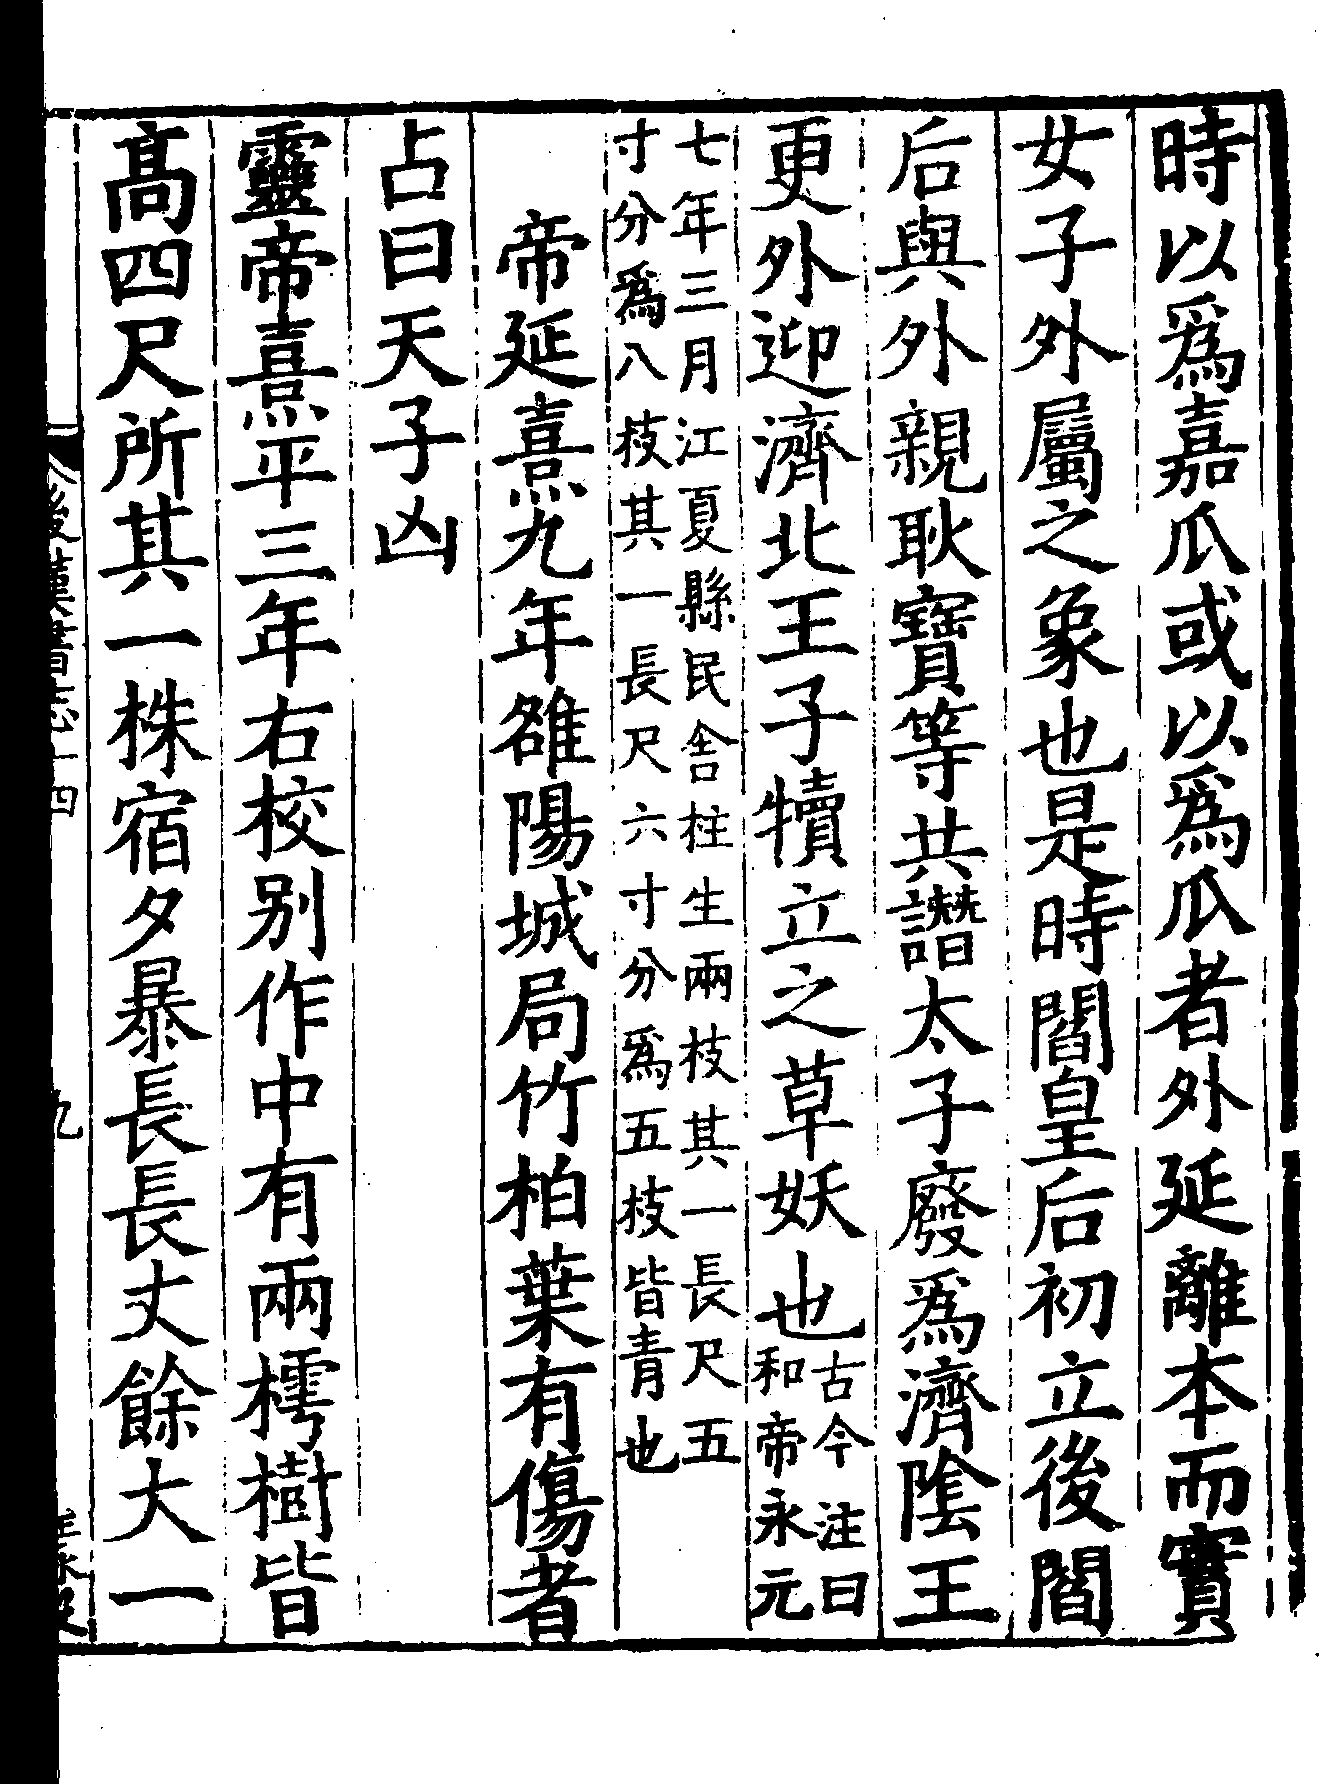 時以爲嘉瓜或以爲瓜者外延離本而實
女子外屬之象也是時閻皇后初立後閻
后與外親耿寶等共譖太子廢爲濟隂王
更外迎濟北王子犢立之草妖也古今注曰
和帝永元
七年三月江夏縣民舍柱生兩枝其一長尺五
寸分爲八枝其一長尺六寸分爲五枝皆青也
帝延熹九年雒陽城局竹柏葉有傷者
占曰天子凶
靈帝熹平三年右校别作中有兩樗樹皆
髙四尺所其一株宿夕暴長長丈餘大一
後漢書志十四
九